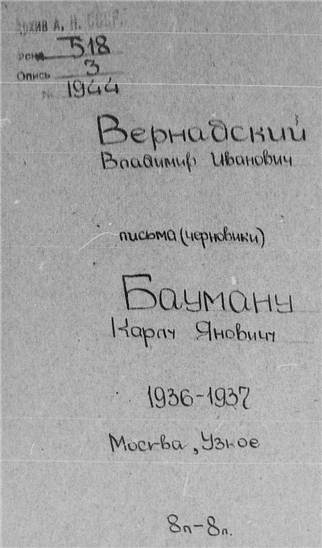 Архив А. Н. СССР.
Фонд 518
Опись 3
№ 1944
Вернадский
Владимир Иванович
письма (черновики)
Бауману
Карлу Яновичу
1936-1937
Москва, Узкое
8л-8л.